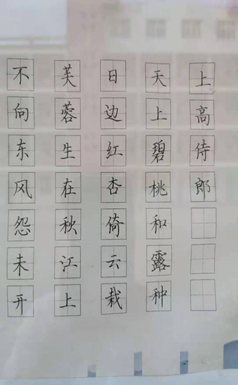 上高侍郎
天上碧桃和露种
日边红杏倚云栽
芙蓉生在秋江上
不向东风怨未开